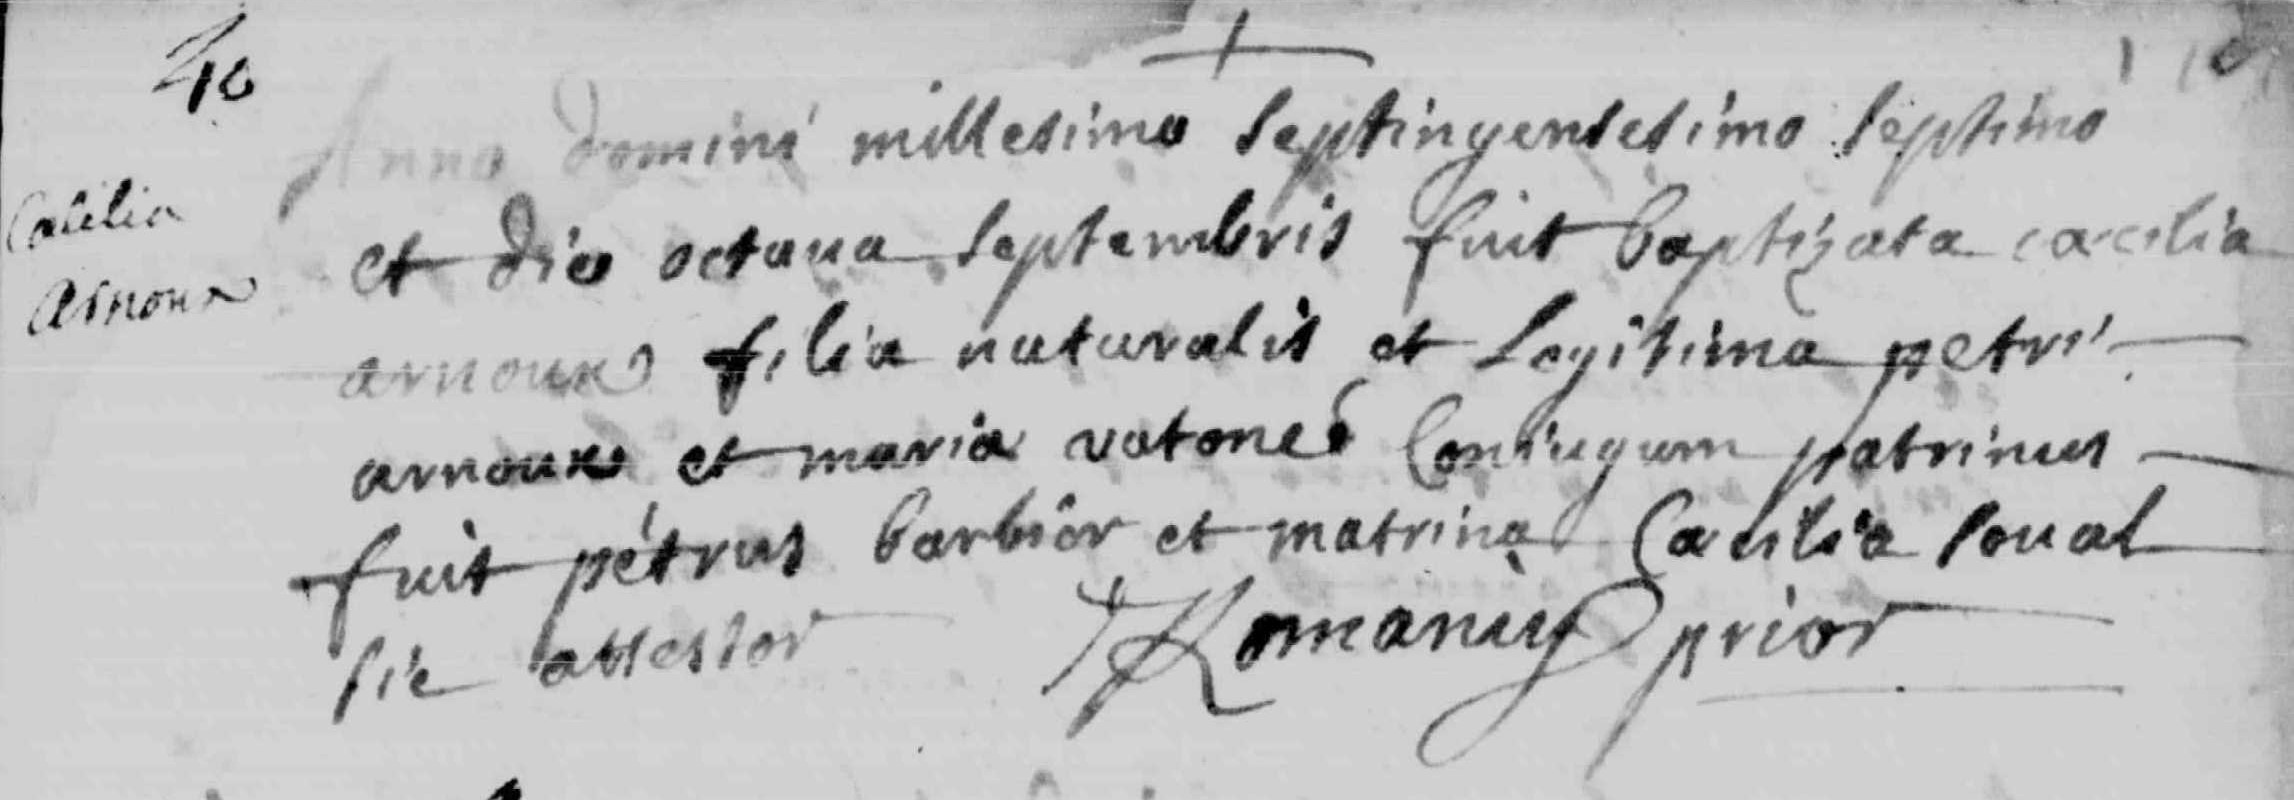 40
Anno domini millesimo septingentesimo septimo
Cacilia
et die octaua septembris fuit baptizata cacilia
Arnoux
arnoux filia naturalis et legitima petri
arnoux et maria votones coniugum patrinus
fuit pétrus barbier et matrina Cacilia soual
sic attestor Romanus prior